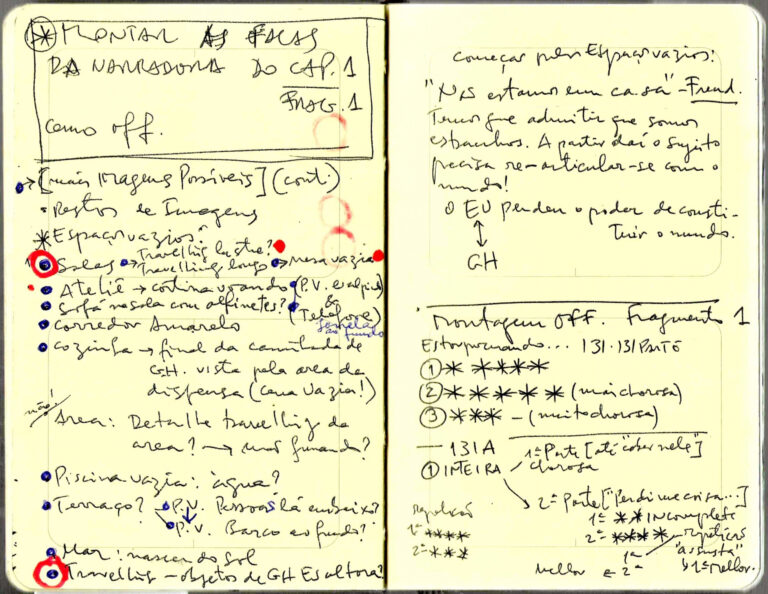 * MONTAR AS FALAS
DA NARRADORA DO CAP. 1
FRAG. 1
como off.
[mais Imagens Possíveis] (cont.)
• Restos de Imagens
* Espaços vazios:
• Salas → Travelling lustre?
→ Travelling longo → mesa vazia
• Ateliê → cortina voando (P.V.
• Sofá na sala com alfinetes? & Telefone)
• corredor Amarelo
janelas ao fundo
• cozinha → final da caminhada de
GH. vista pela area da
dispensa (cena vazia!)
não!
Area: Detalhe travelling da
area? → mãos fumando?
• Piscina vazia: água?
• Terraço? → P.V. Pessoas lá embaixo?
→ P.V. Barco ao fundo?
• Mar: nascer do sol
• Travelling – objetos de GH Escultora?
começar pelos Espaços vazios:
"Não estamos em casa" – Freud.
Temos que admitir que somos
estranhos. A partir daí o sujeito
precisa re-articular-se com o
mundo!
O EU perdeu o poder de consti-
tuir o mundo.
↕
GH
Montagem OFF. Fragmento 1
131. 131 PARTE
① * ****
② * * * * * (mais chorosa)
③ *** – (muito chorosa)
— 131A
① INTEIRA / chorosa
1ª Parte [até
→ 2ª Parte ["Perdi uma coisa...]
1ª ** INcompleto
2ª **** repetições
1ª "assusta"
Mellor ← 2ª ↳ 1ª Mellor.
repetição
1ª ****
2ª ***